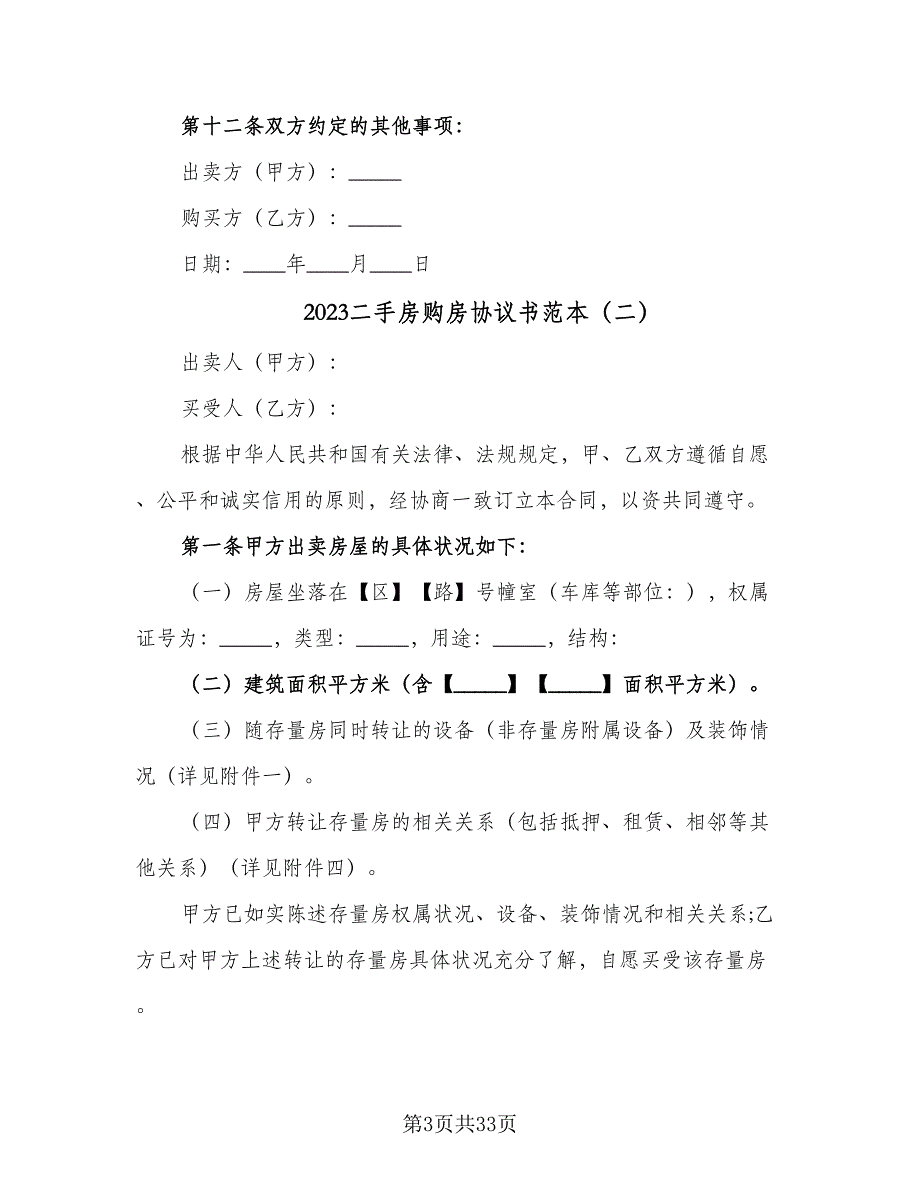 第十二条双方约定的其他事项：
出卖方（甲方）：_____
购买方（乙方）：_____
日期：____年____月____日
2023二手房购房协议书范本（二）
出卖人（甲方）：
买受人（乙方）：
根据中华人民共和国有关法律、法规规定，甲、乙双方遵循自愿
、公平和诚实信用的原则，经协商一致订立本合同，以资共同遵守。
第一条甲方出卖房屋的具体状况如下：
（一）房屋坐落在【区】【路】号幢室（车库等部位：），权属
证号为：_____，类型：_____，用途：_____，结构：
（二）建筑面积平方米（含【_____】【_____】面积平方米）。
（三）随存量房同时转让的设备（非存量房附属设备）及装饰情
况（详见附件一）。
（四）甲方转让存量房的相关关系（包括抵押、租赁、相邻等其
他关系）（详见附件四）。
甲方已如实陈述存量房权属状况、设备、装饰情况和相关关系;乙
方已对甲方上述转让的存量房具体状况充分了解，自愿买受该存量房
。
第3页共33页